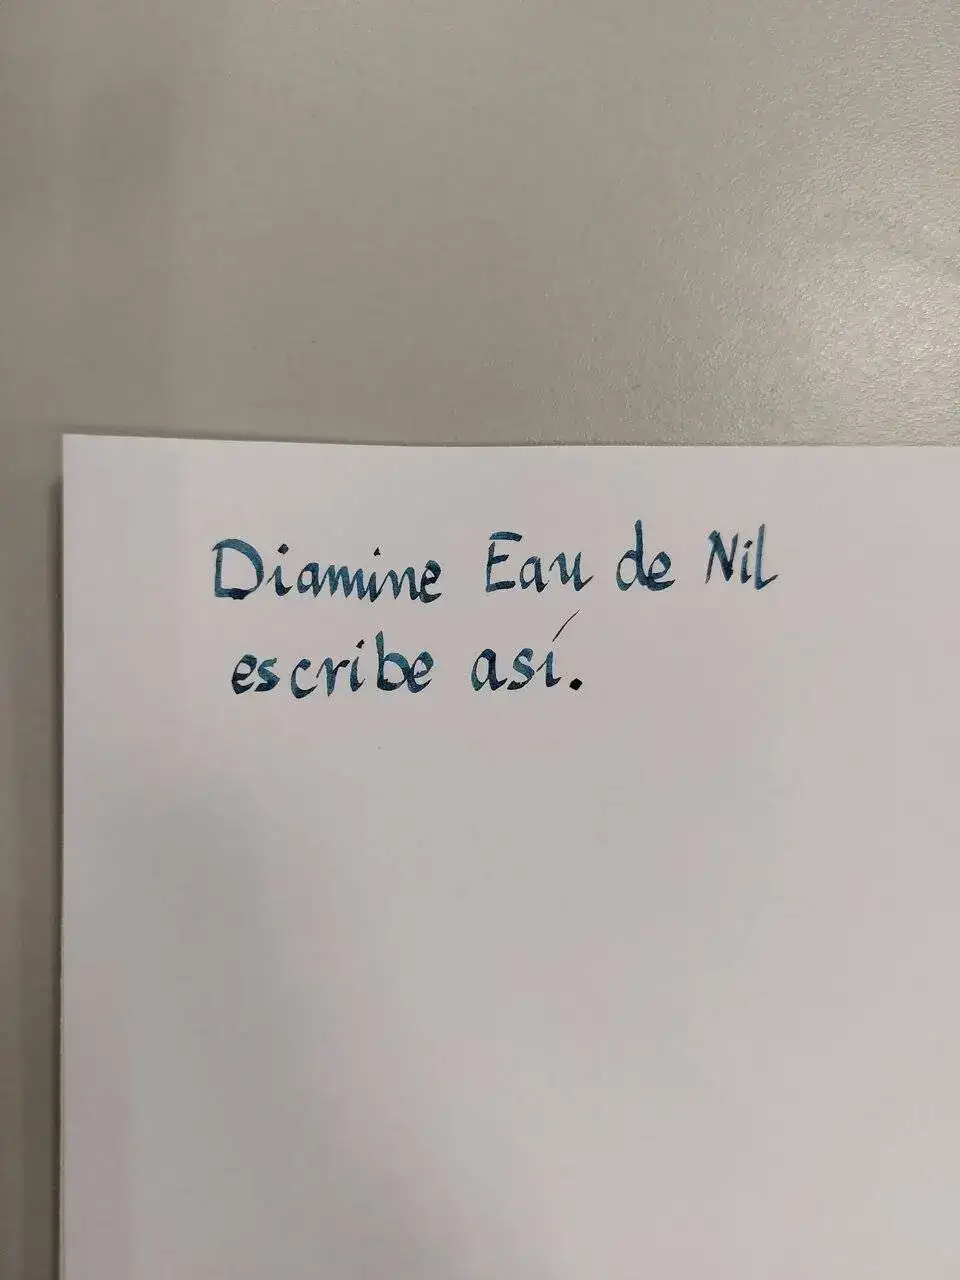 Diamine Eau de Nil
escribe así.